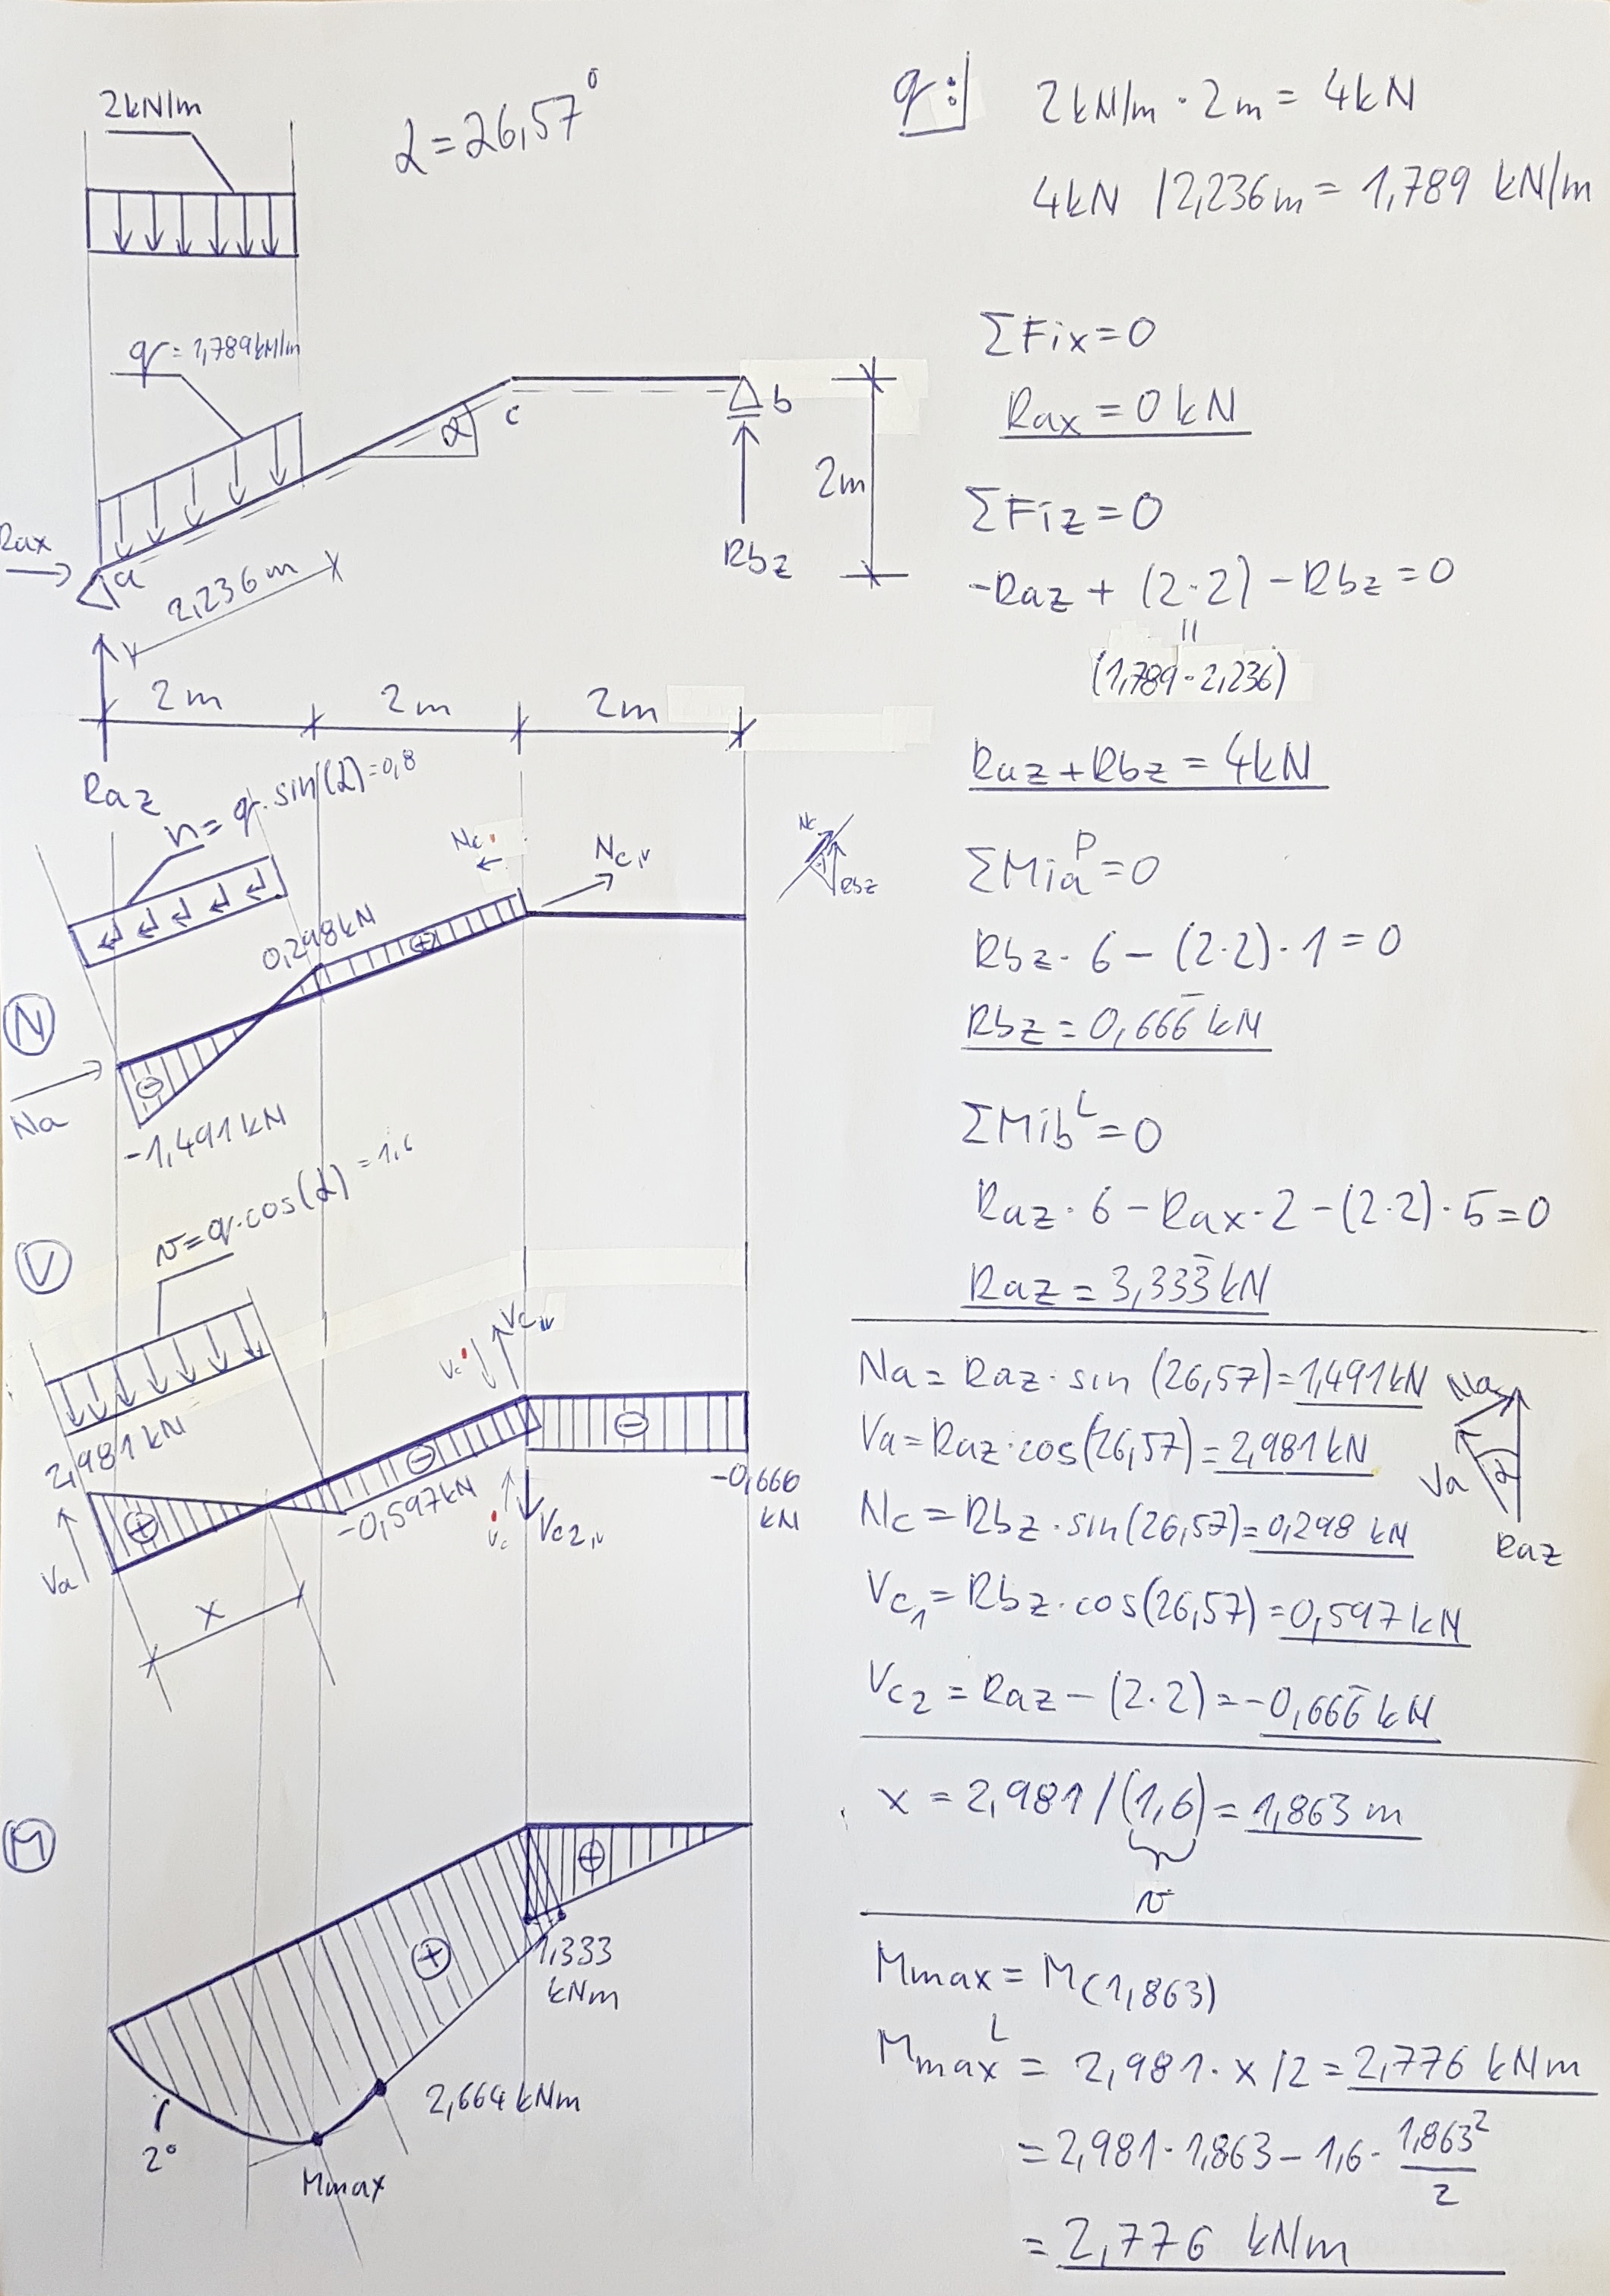 2kN/m
α = 26,57°
q = 1,789kN/m
α
c
b
2m
Rax
a
2,236m
Rbz
2m 2m 2m
Raz
n = q·sin(α) = 0,8
Nc
Nc,v
Nc
Rbz
0,298kN
+
N
−
Na
-1,491kN
v = q·cos(α) = 1,6
V
Vc
Vc,v
2,981kN
−
−
+
-0,597kN
-0,666
kN
Vc
Vc2,v
Va
x
M
+
+
1,333
kNm
2,664kNm
2°
Mmax
q:
2kN/m · 2m = 4kN
4kN / 2,236m = 1,789 kN/m
ΣFix = 0
Rax = 0kN
ΣFiz = 0
-Raz + (2·2) - Rbz = 0
(1,789·2,236)
Raz + Rbz = 4kN
ΣMia^P = 0
Rbz · 6 - (2·2) · 1 = 0
Rbz = 0,666̄ kN
ΣMib^L = 0
Raz · 6 - Rax · 2 - (2·2) · 5 = 0
Raz = 3,333̄ kN
Na = Raz · sin (26,57) = 1,491kN
Va = Raz·cos(26,57) = 2,981kN
Nc = Rbz · sin(26,57) = 0,298 kN
Na
Va
α
Raz
Vc1 = Rbz · cos(26,57) = 0,597kN
Vc2 = Raz - (2·2) = -0,666̄ kN
x = 2,981 / (1,6) = 1,863m
v
Mmax = M(1,863)
Mmax^L = 2,981 · x/2 = 2,776 kNm
= 2,981 · 1,863 - 1,6 · 1,863²/2
= 2,776 kNm